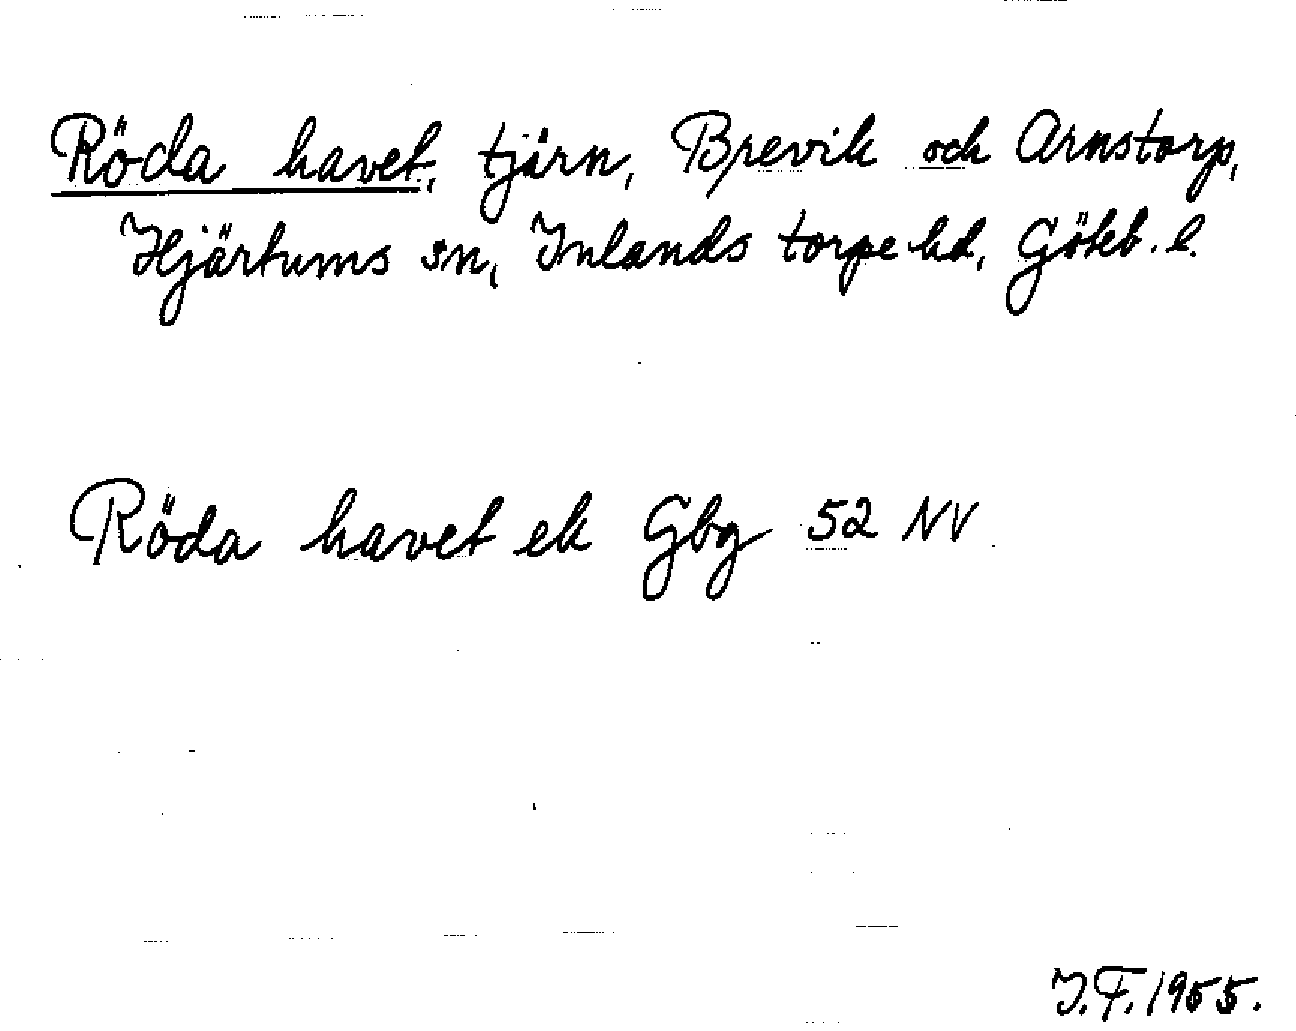 Röda havet, tjärn, Brevik och Arnstorp,
Hjärtums sn, Inlands torpe hd, Göteb. l.
Röda havet ek Gbg 52 NV
J.F. 1955.